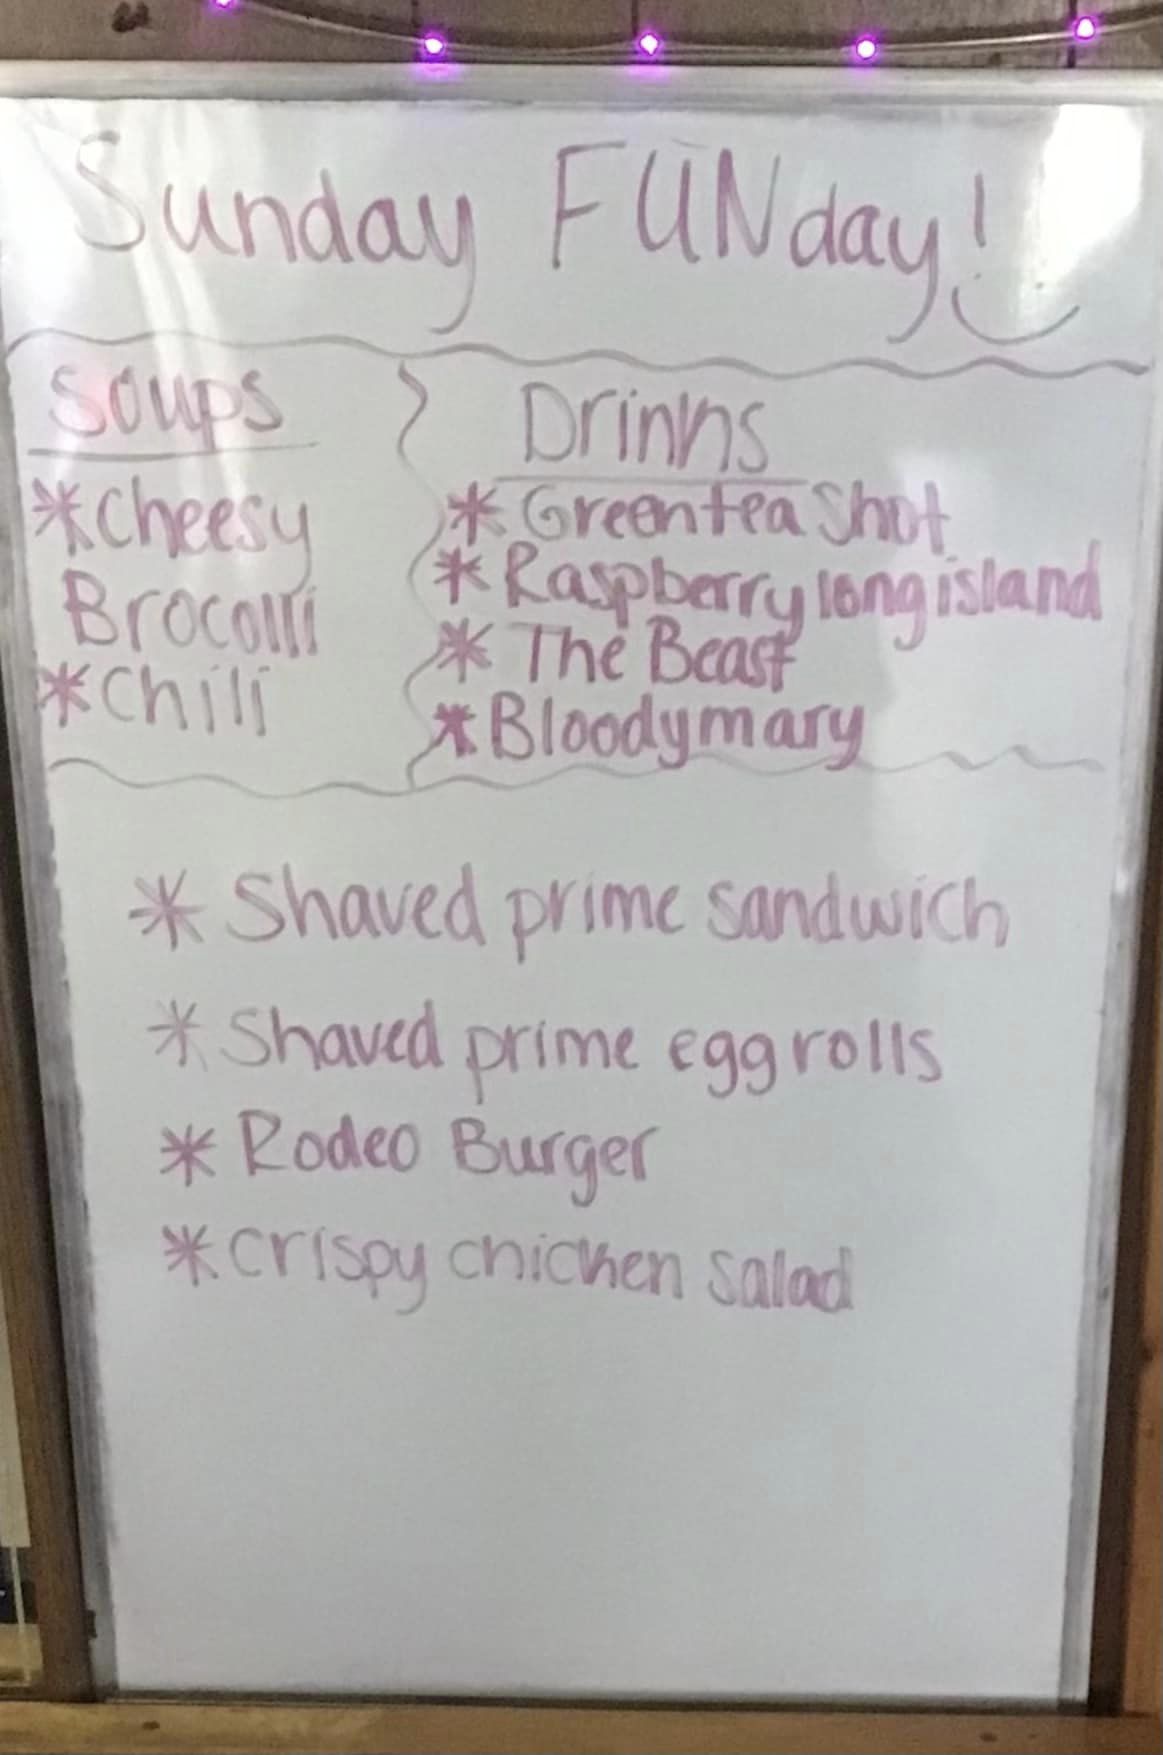 Sunday FUNday!
Soups
*Cheesy
Brocolli
*Chili
Drinks
*Green tea Shot
*Raspberry long island
*The Beast
*Bloodymary
*Shaved prime sandwich
*Shaved prime egg rolls
*Rodeo Burger
*Crispy chicken salad